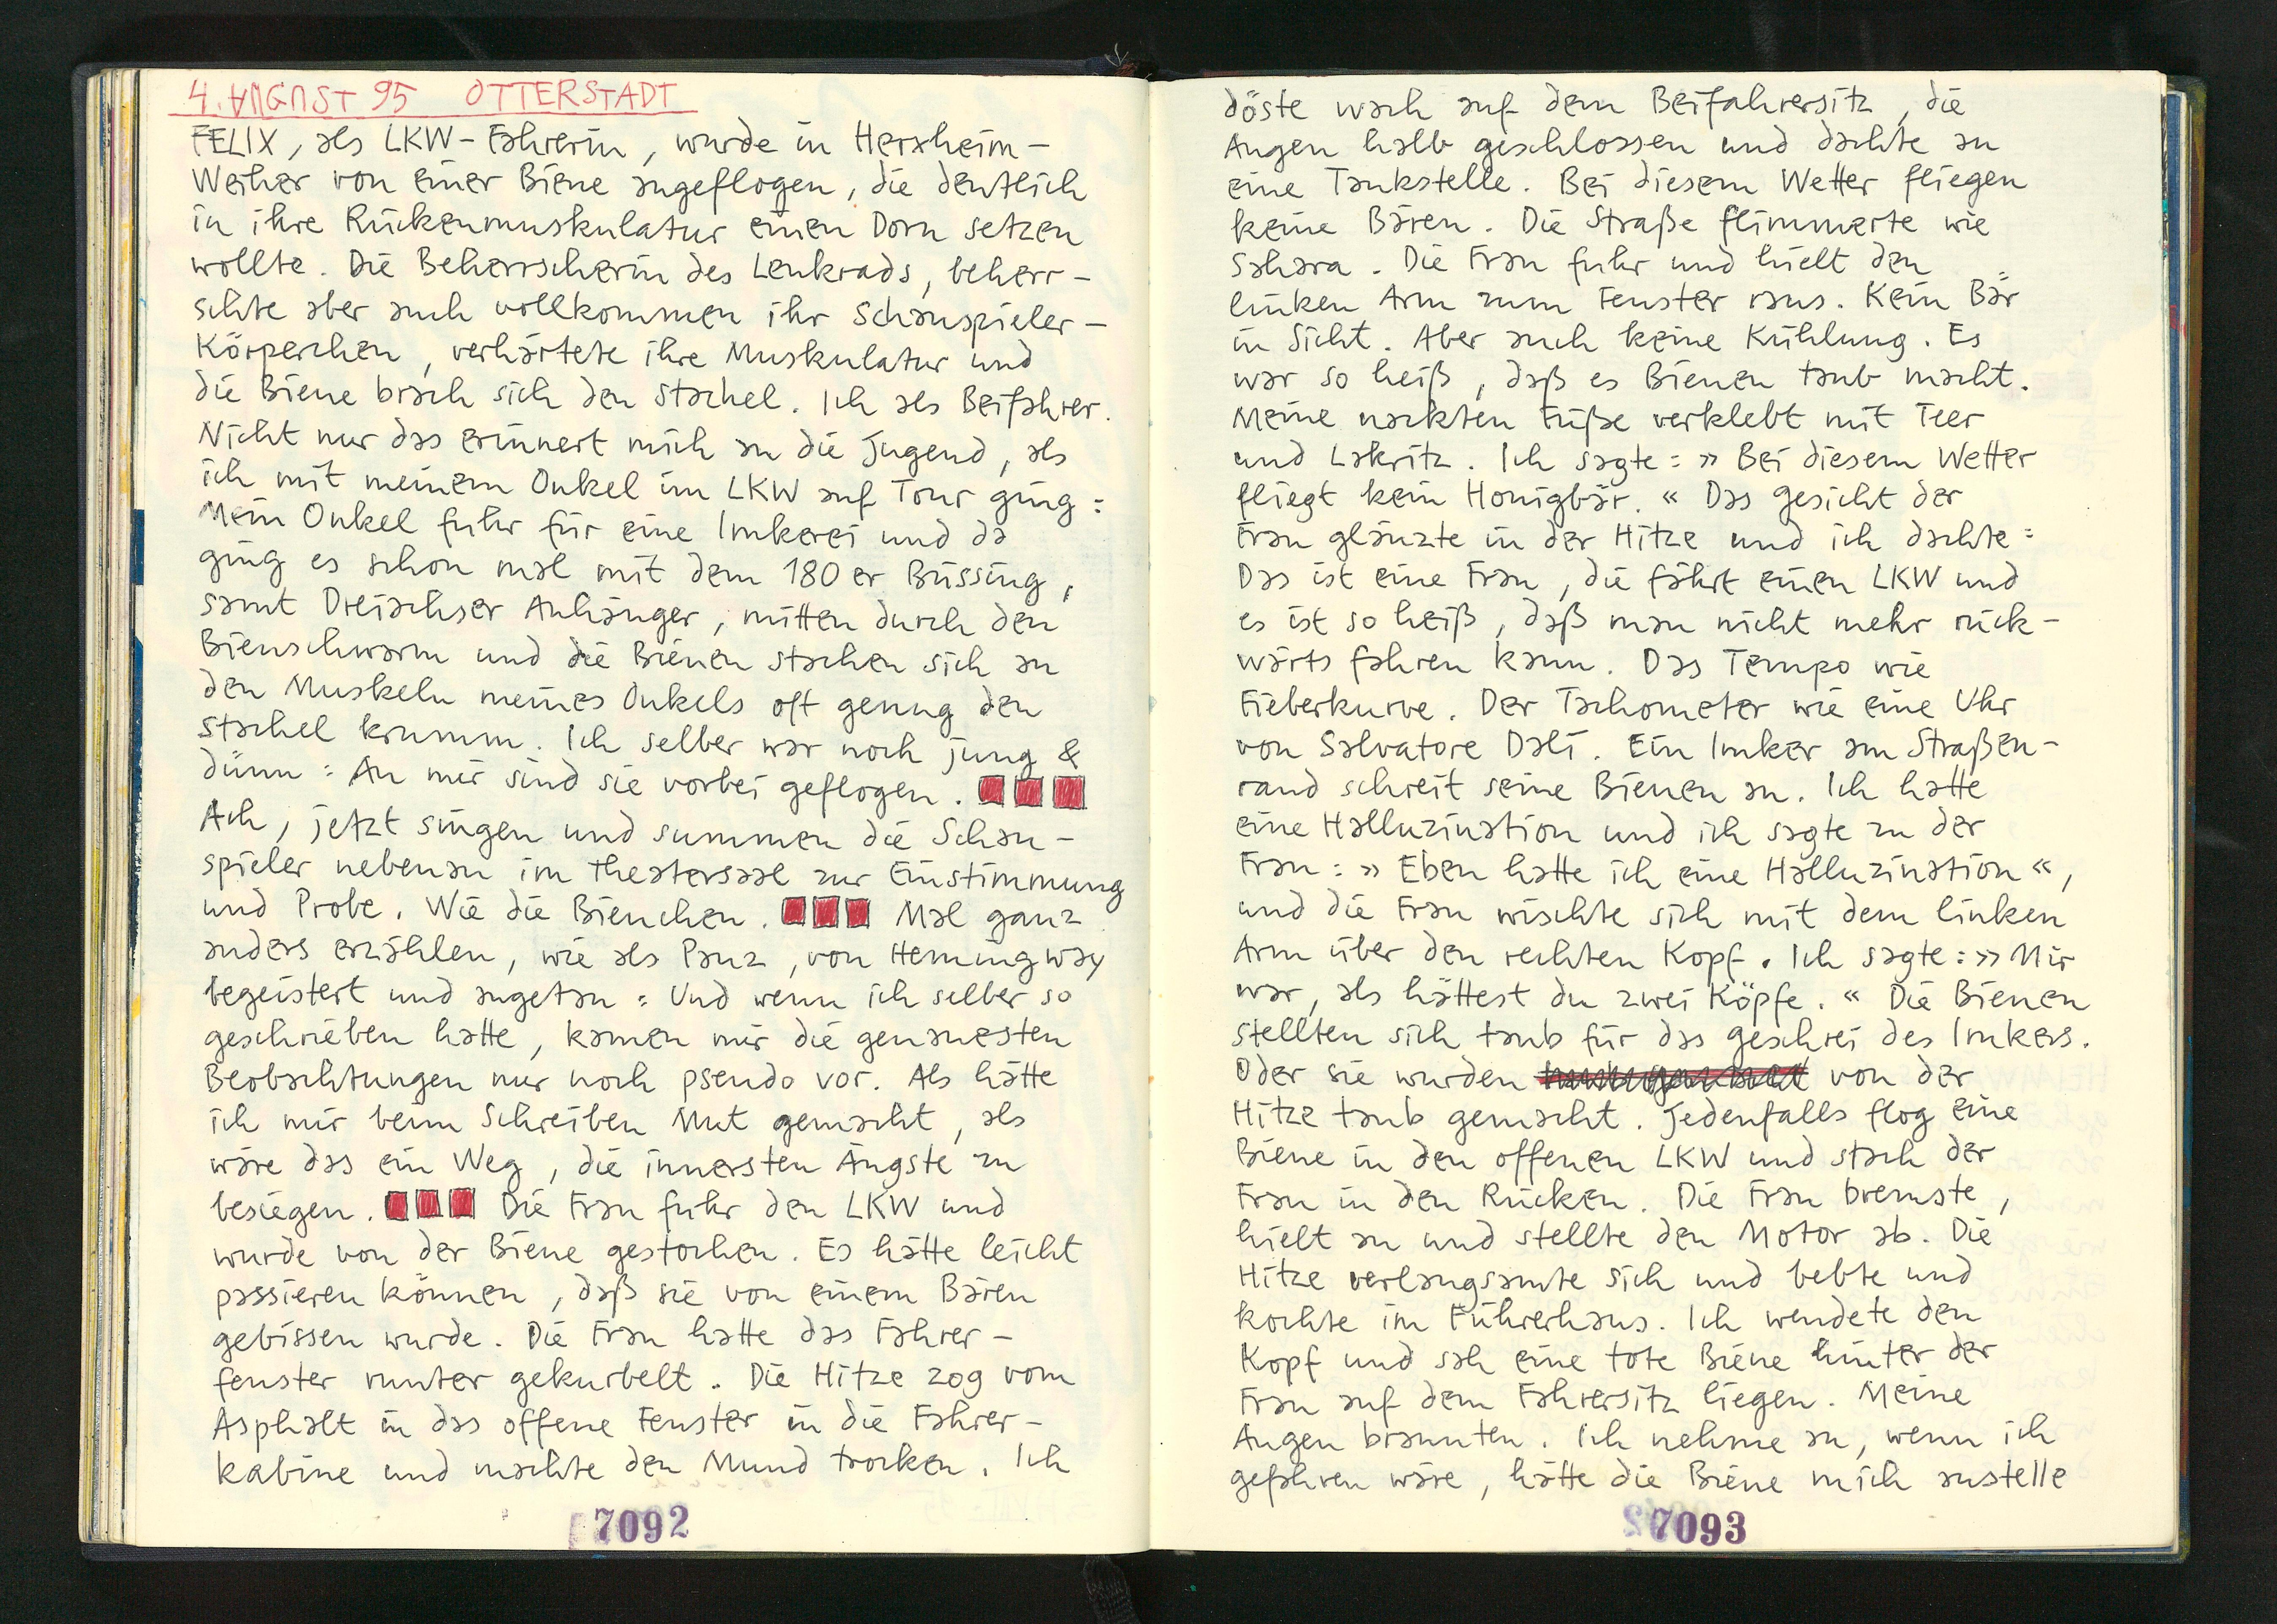 4. AUGUST 95 OTTERSTADT
FELIX, als LKW-Fahrerin, wurde in Herxheim-
Weiher von einer Biene angeflogen, die deutlich
in ihre Rückenmuskulatur einen Dorn setzen
wollte. Die Beherrscherin des Lenkrads, beherr-
schte aber auch vollkommen ihr Schauspieler-
Körperchen, verhärtete ihre Muskulatur und
die Biene brach sich den Stachel. Ich als Beifahrer.
Nicht nur das erinnert mich an die Jugend, als
ich mit meinem Onkel im LKW auf Tour ging:
Mein Onkel fuhr für eine Imkerei und da
ging es schon mal mit dem 180er Büssing,
samt Dreiachser Anhänger, mitten durch den
Bienschwarm und die Bienen stachen sich an
den Muskeln meines Onkels oft genug den
Stachel krumm. Ich selber war noch jung &
dünn: An mir sind sie vorbei geflogen.
Ach, jetzt singen und summen die Schau-
spieler nebenan im Theatersaal zur Einstimmung
und Probe. Wie die Bienchen. Mal ganz
anders erzählen, wie als Panz, von Hemingway
begeistert und angetan: Und wenn ich selber so
geschrieben hatte, kamen mir die genauesten
Beobachtungen nur noch pseudo vor. Als hätte
ich mir beim Schreiben Mut gemacht, als
wäre das ein Weg, die innersten Ängste zu
besiegen. Die Frau fuhr den LKW und
wurde von der Biene gestochen. Es hätte leicht
passieren können, daß sie von einem Bären
gebissen wurde. Die Frau hatte das Fahrer-
fenster runter gekurbelt. Die Hitze zog vom
Asphalt in das offene Fenster in die Fahrer-
kabine und machte den Mund trocken. Ich
7092
döste wach auf dem Beifahrersitz, die
Augen halb geschlossen und dachte an
eine Tankstelle. Bei diesem Wetter fliegen
keine Bären. Die Straße flimmerte wie
Sahara. Die Frau fuhr und hielt den
linken Arm zum Fenster raus. Kein Bär
in Sicht. Aber auch keine Kühlung. Es
war so heiß, daß es Bienen taub macht.
Meine nackten Füße verklebt mit Teer
und Lakritz. Ich sagte: » Bei diesem Wetter
fliegt kein Honigbär. « Das Gesicht der
Frau glänzte in der Hitze und ich dachte:
Das ist eine Frau, die fährt einen LKW und
es ist so heiß, daß man nicht mehr rück-
wärts fahren kann. Das Tempo wie
Fieberkurve. Der Tachometer wie eine Uhr
von Salvatore Dali. Ein Imker am Straßen-
rand schreit seine Bienen an. Ich hatte
eine Halluzination und ich sagte zu der
Frau: » Eben hatte ich eine Halluzination «,
und die Frau wischte sich mit dem linken
Arm über den rechten Kopf. Ich sagte: » Mir
war, als hättest du zwei Köpfe. « Die Bienen
stellten sich taub für das Geschrei des Imkers.
Oder sie wurden von der
Hitze taub gemacht. Jedenfalls flog eine
Biene in den offenen LKW und stach der
Frau in den Rücken. Die Frau bremste,
hielt an und stellte den Motor ab. Die
Hitze verlangsamte sich und bebte und
kochte im Führerhaus. Ich wendete den
Kopf und sah eine tote Biene hinter der
Frau auf dem Fahrersitz liegen. Meine
Augen brannten. Ich nehme an, wenn ich
gefahren wäre, hätte die Biene mich anstelle
7093